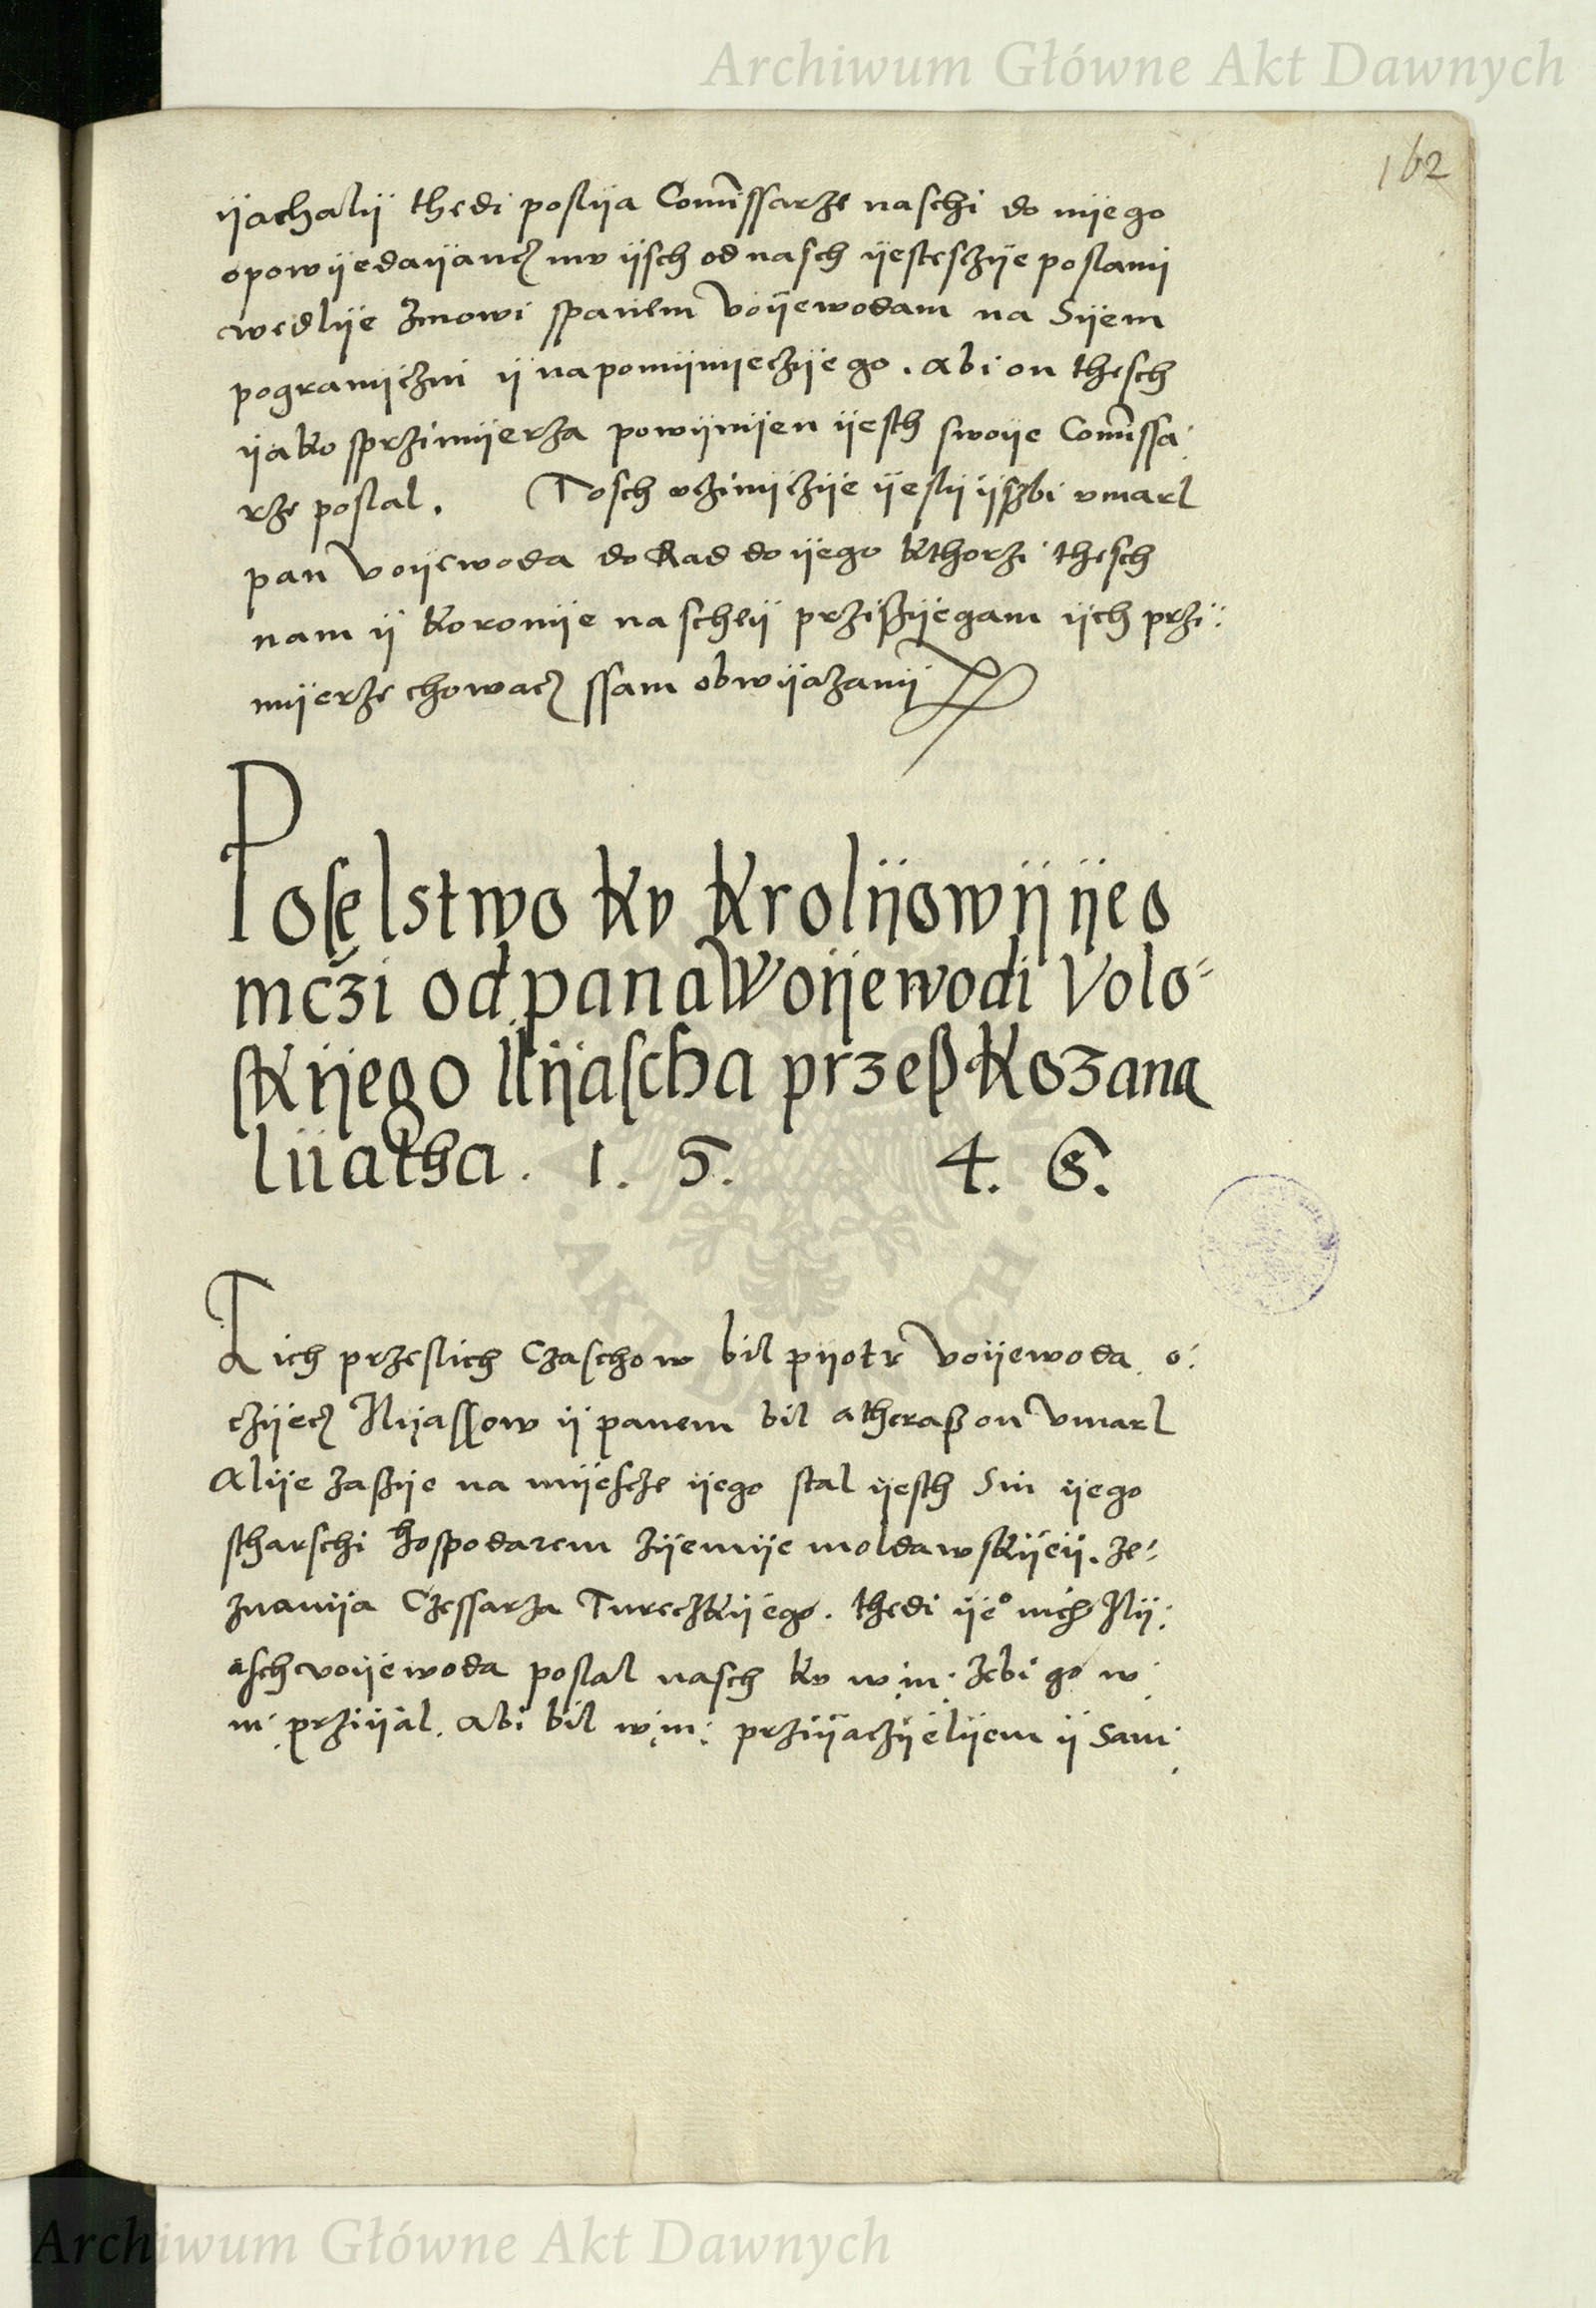 Archiwum Główne Akt Dawnych
162
ÿachalÿ thedi poslÿa Com̃issarze naschi do nÿego
opowÿedaÿancz mv ÿsch od nasch ÿestesczÿe poslanÿ
wedlÿe zmowi spanem voÿewodam na Sÿem
pogranÿczni ÿ napomÿnÿeczÿe go. abi on thesch
ÿako sprzimÿerza powÿnÿen ÿesth swoÿe Com̃issa:
rze poslal. Tosch vczinÿczÿe ÿeslÿ ÿszbi vmarl
pan voÿewoda do Rad do ÿego kthorzi thesch
nam ÿ koronÿe nascheÿ przißÿegam ÿch przi:
mÿerze chowacz ssam obwÿazanÿ
Poselstwo kv krolÿowÿ ÿeo
mczi od pana Woÿewodi Volo-
skÿego Ilÿascha przeß kozana
lÿatha. 1. 5. 4. 6.
Tich przeslich Czaschow bil pÿotr voÿewoda o:
czÿecz Ilÿassow ÿ panem bil a theraß on vmarl
alÿe zaßÿe na mÿescze ÿego stal ÿesth Sin ÿego
stharschi hospodarem zÿemÿe moldawskÿeÿ. ze-
znanÿa Czessarza Tureczkÿego. thedi ÿeo mcz Ilÿ:
asch voÿewoda poslal nasch kv w.m: zebi go w:
m: przÿÿal. abi bil w.m: przÿÿaczÿelÿem ÿ sam:
Archiwum Główne Akt Dawnych